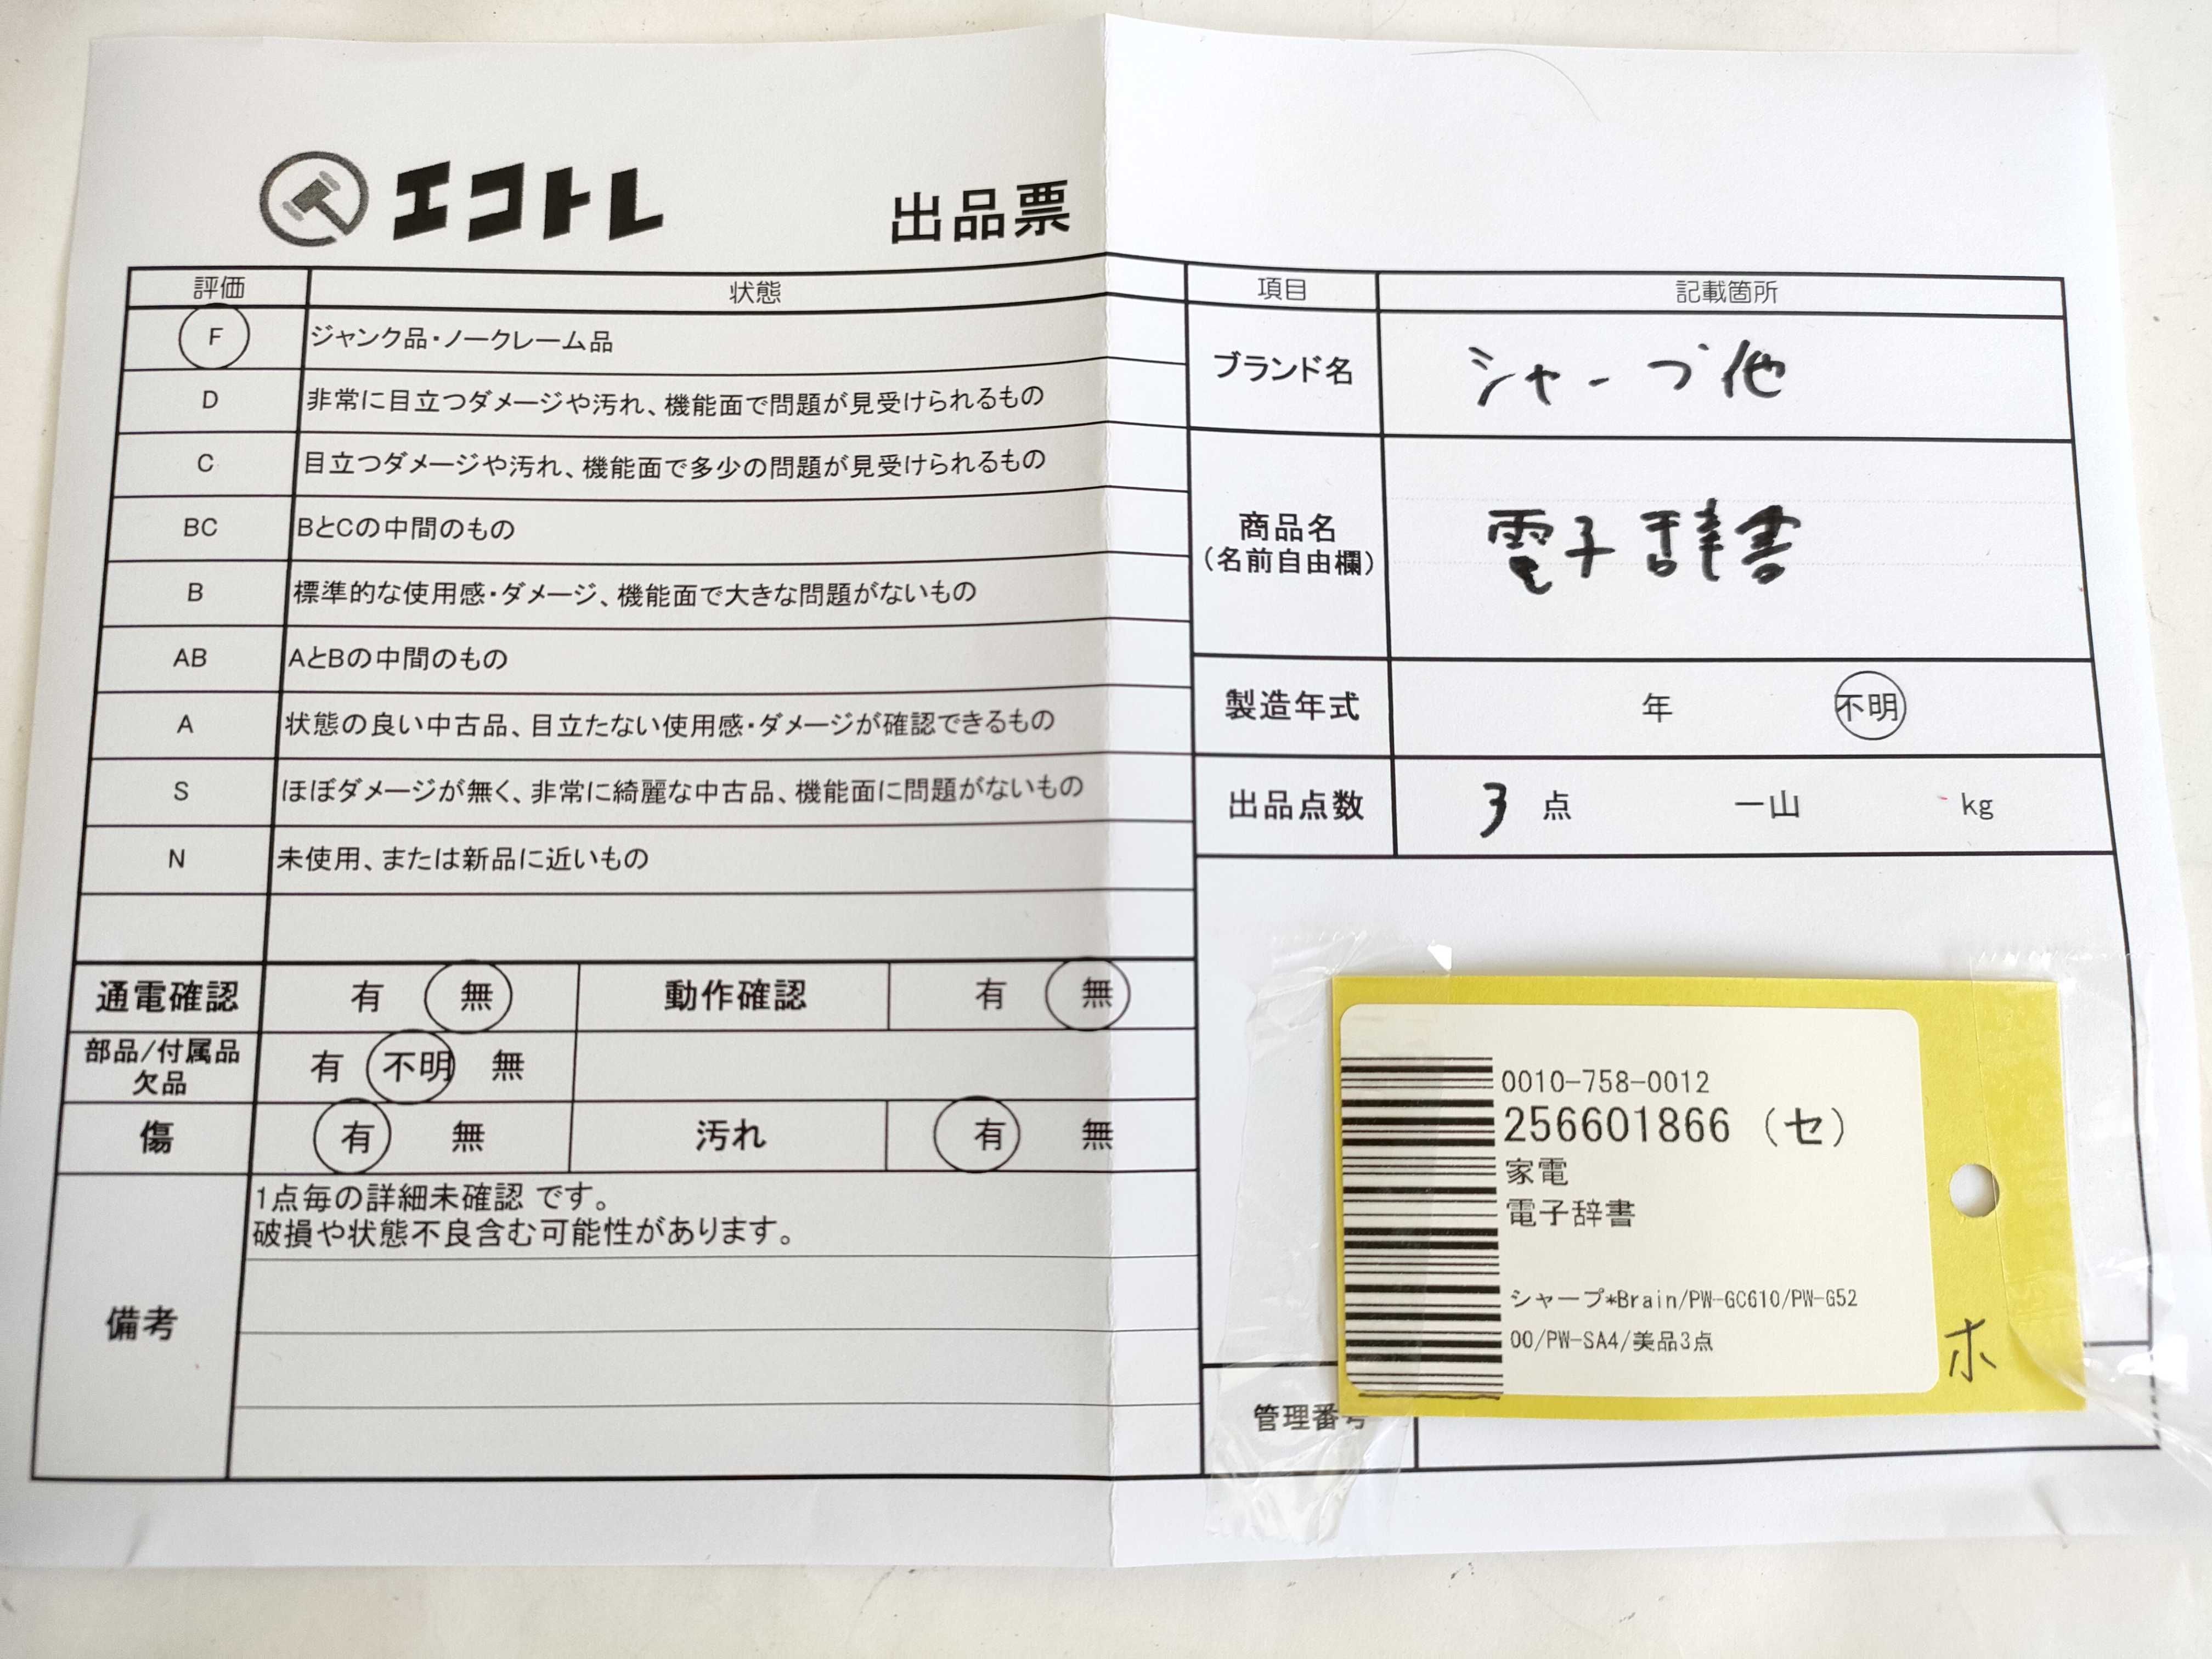 エコトレ 出品票
評価 状態
F ジャンク品・ノークレーム品
D 非常に目立つダメージや汚れ、機能面で問題が見受けられるもの
C 目立つダメージや汚れ、機能面で多少の問題が見受けられるもの
BC BとCの中間のもの
B 標準的な使用感・ダメージ、機能面で大きな問題がないもの
AB AとBの中間のもの
A 状態の良い中古品、目立たない使用感・ダメージが確認できるもの
S ほぼダメージが無く、非常に綺麗な中古品、機能面に問題がないもの
N 未使用、または新品に近いもの
通電確認 有 無 動作確認 有 無
部品/付属品
欠品
有 不明 無
傷 有 無 汚れ 有 無
備考
1点毎の詳細未確認 です。
破損や状態不良含む可能性があります。
項目 記載箇所
ブランド名 シャープ他
商品名
(名前自由欄)
電子辞書
製造年式 年 不明
出品点数 3 点 一山 kg
0010-758-0012
256601866 (セ)
家電
電子辞書
シャープ*Brain/PW-GC610/PW-G52
00/PW-SA4/美品3点
ホ
管理番号